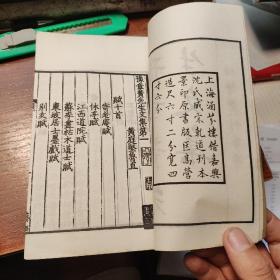 上海涵芬樓借嘉興
沈氏藏宋乾道刊本
景印原書版匡高營
造尺六寸二分寬四
寸六分
豫章黃先生文集第一
黃庭堅魯直
賦十首
寄老庵賦
休亭賦
江西道院賦
蘇李畫枯木道士賦
東坡居士墨戲賦
別友賦